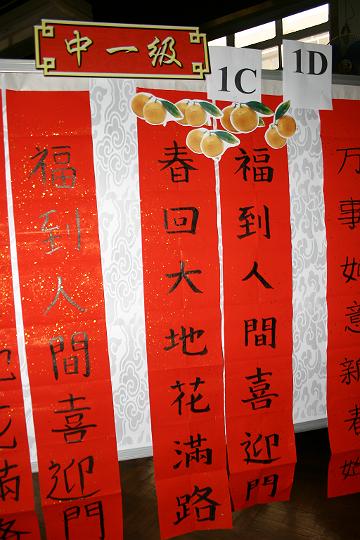 中一級
1C
1D
花滿路
福到人間喜迎門
春回大地花滿路
福到人間喜迎門
万事如意新春